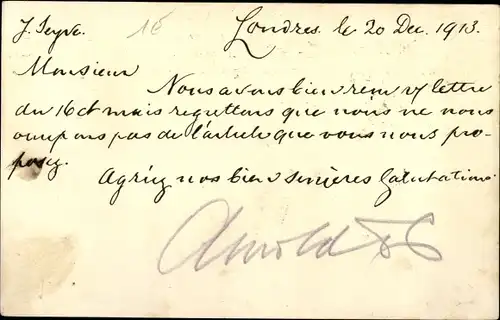 J. Seyve. 1E Londres. le 20 Dec. 1913.
Monsieur
Nous avons bien reçu v/ lettre
du 16 ct mais regrettons que nous ne nous
occupons pas de l'article que vous nous pro-
posez.
Agréez nos bien sincères Salutations.
Arnold